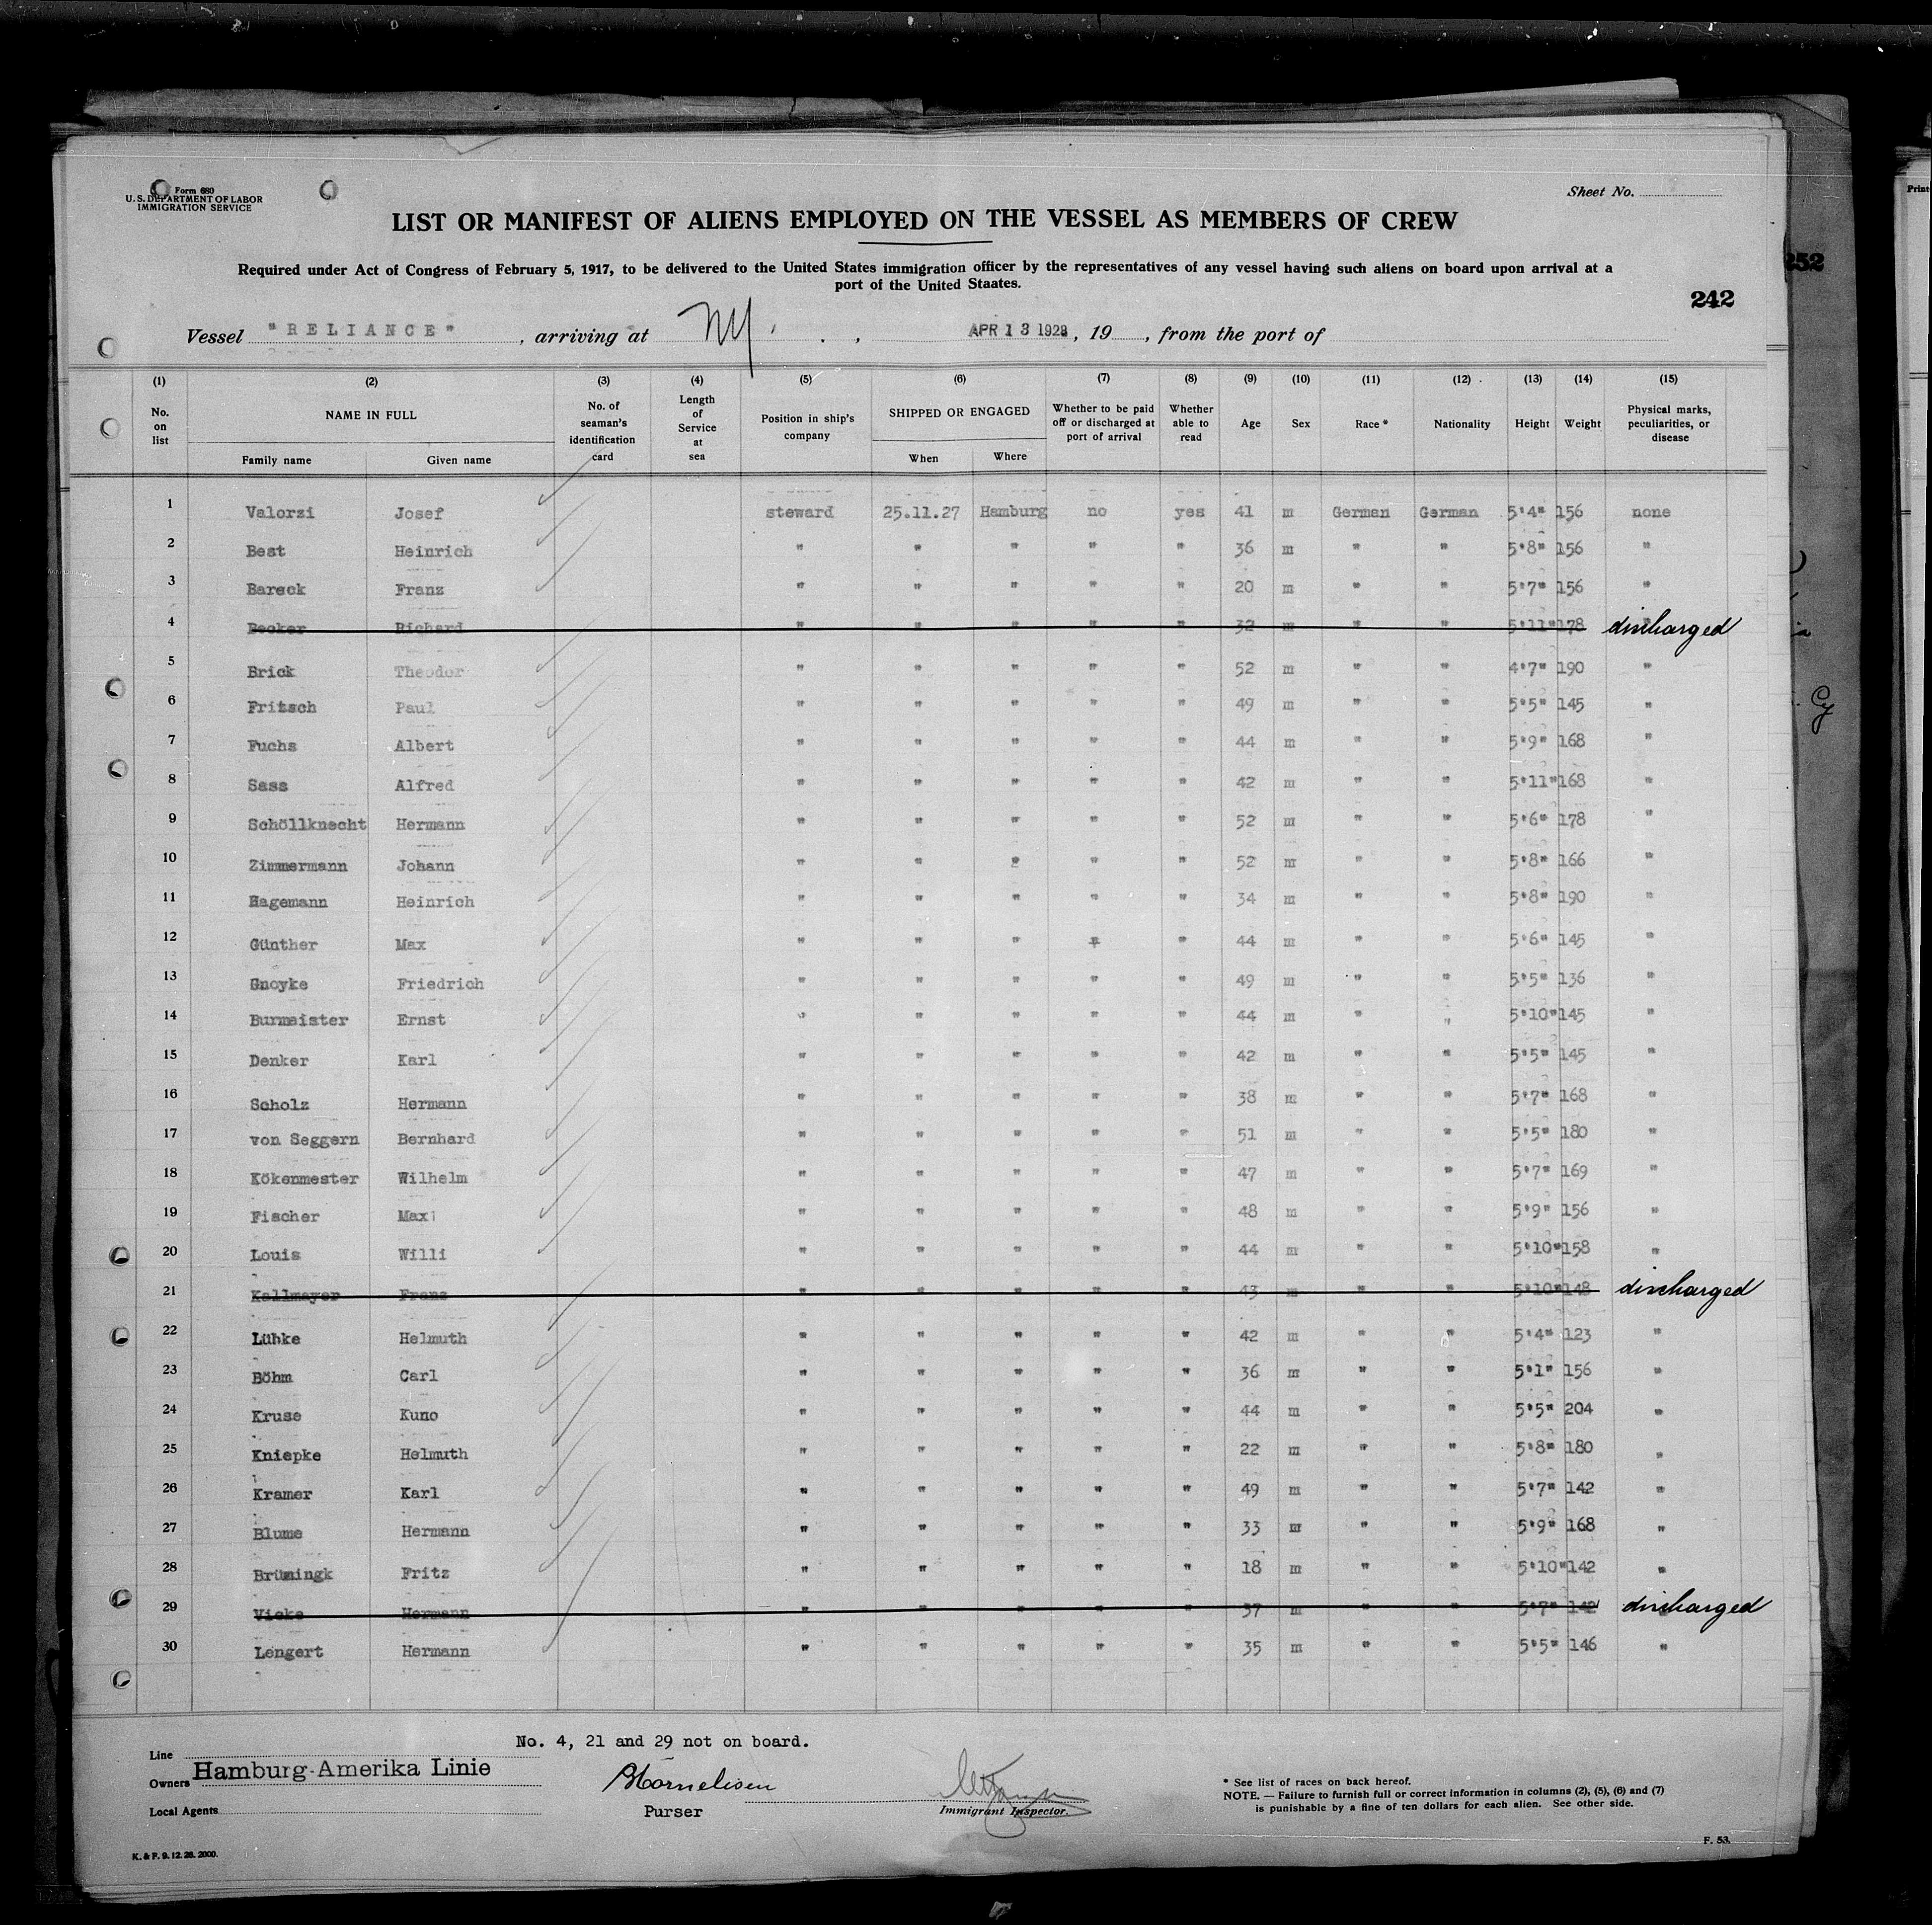 Form 680
U. S. DEPARTMENT OF LABOR
IMMIGRATION SERVICE
Sheet No.
LIST OR MANIFEST OF ALIENS EMPLOYED ON THE VESSEL AS MEMBERS OF CREW
Required under Act of Congress of February 5, 1917, to be delivered to the United States immigration officer by the representatives of any vessel having such aliens on board upon arrival at a
port of the United Staates.
252
242
Vessel "RELIANCE", arriving at NY., APR 13 1928, 19, from the port of
(1) (2) (3) (4) (5) (6) (7) (8) (9) (10) (11) (12) (13) (14) (15)
No. on list NAME IN FULL Family name Given name No. of seaman's identification card Length of Service at sea Position in ship's company SHIPPED OR ENGAGED When Where Whether to be paid off or discharged at port of arrival Whether able to read Age Sex Race * Nationality Height Weight Physical marks, peculiarities, or disease
1 Valorzi Josef steward 25.11.27 Hamburg no yes 41 m German German 5'4" 156 none
2 Best Heinrich " " " " " 36 m " " 5'8" 156 "
3 Bareck Franz " " " " " 20 m " " 5'7" 156 "
4 Becker Richard " " " " " 32 m " " 5'11" 178 discharged
5 Brick Theodor " " " " " 52 m " " 4'7" 190 "
6 Fritsch Paul " " " " " 49 m " " 5'5" 145 "
7 Fuchs Albert " " " " " 44 m " " 5'9" 168 "
8 Sass Alfred " " " " " 42 m " " 5'11" 168 "
9 Schöllknecht Hermann " " " " " 52 m " " 5'6" 178 "
10 Zimmermann Johann " " " " " 52 m " " 5'8" 166 "
11 Hagemann Heinrich " " " " " 34 m " " 5'8" 190 "
12 Günther Max " " " " " 44 m " " 5'6" 145 "
13 Gnoyke Friedrich " " " " " 49 m " " 5'5" 136 "
14 Burmeister Ernst " " " " " 44 m " " 5'10" 145 "
15 Denker Karl " " " " " 42 m " " 5'5" 145 "
16 Scholz Hermann " " " " " 38 m " " 5'7" 168 "
17 von Seggern Bernhard " " " " " 51 m " " 5'5" 180 "
18 Kökenmester Wilhelm " " " " " 47 m " " 5'7" 169 "
19 Fischer Max " " " " " 48 m " " 5'9" 156 "
20 Louis Willi " " " " " 44 m " " 5'10" 158 "
21 Kallmeyer Franz " " " " " 43 m " " 5'10" 148 discharged
22 Lübke Helmuth " " " " " 42 m " " 5'4" 123 "
23 Böhm Carl " " " " " 36 m " " 5'1" 156 "
24 Kruse Kuno " " " " " 44 m " " 5'5" 204 "
25 Kniepke Helmuth " " " " " 22 m " " 5'8" 180 "
26 Kramer Karl " " " " " 49 m " " 5'7" 142 "
27 Blume Hermann " " " " " 33 m " " 5'9" 168 "
28 Brümingk Fritz " " " " " 18 m " " 5'10" 142 "
29 Vieke Hermann " " " " " 37 m " " 5'7" 142 discharged
30 Lengert Hermann " " " " " 35 m " " 5'5" 146 "
No. 4, 21 and 29 not on board.
Line
Owners Hamburg-Amerika Linie
Local Agents
BCornelisen
Purser
Immigrant Inspector.
* See list of races on back hereof.
NOTE. — Failure to furnish full or correct information in columns (2), (5), (6) and (7)
is punishable by a fine of ten dollars for each alien. See other side.
F. 53.
K. & F. 9. 12. 26. 2000.